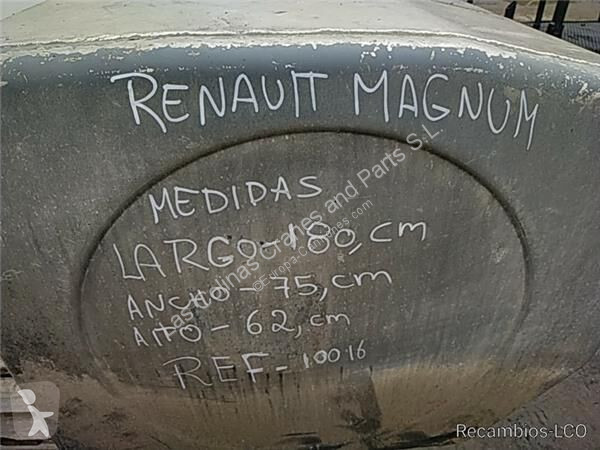 RENAULT MAGNUM
MEDIDAS
LARGO-180, cm
ANCHO-75, cm
AltO-62, cm
REF-10016
Lastrolinas Cranes and Parts S.L.
© Europa-Camiones.com
Recambios-LCO